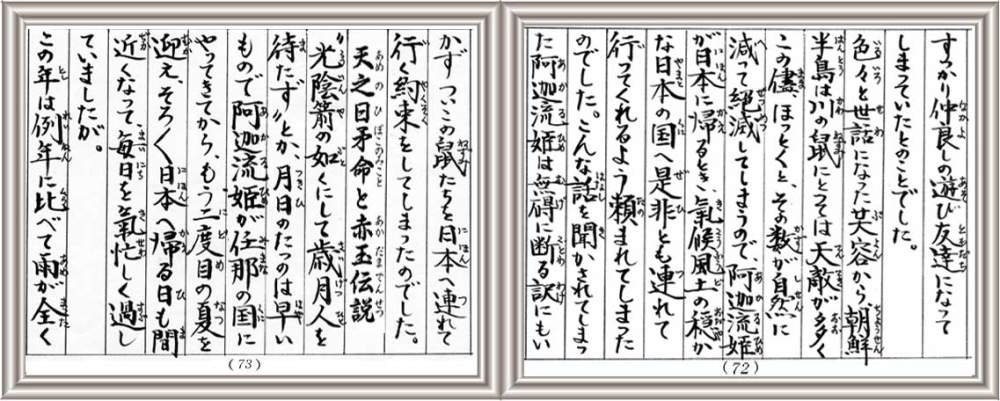 すっかり仲良しの遊び友達になって
しまっていたとのことでした。
色々と世話になった芙容から朝鮮
半島は川の鼠にとっては天敵が多く
この儘、ほっとくと、その数が自然に
減って絶滅してしまうので阿迦流姫
が日本に帰るとき、氣候風土の穏か
な日本の国へ是非とも連れて
行ってくれるよう頼まれてしまった
のでした。こんな話を聞かされてしまっ
た阿迦流姫は無碍に断る訳にもい
(72)
かず ついこの鼠たちを日本へ連れて
行く約束をしてしまったのでした。
天之日矛命と赤玉伝説
〃光陰箭の如くにして歳月人を
待たず〃とか、月日のたつのは早い
もので阿迦流姫が任那の国に
やってきてから、もう二度目の夏を
迎え、そろ〱日本へ帰る日も間
近くなって、毎日を氣忙しく過し
ていましたが。
この年は例年に比べて雨が全く
(73)